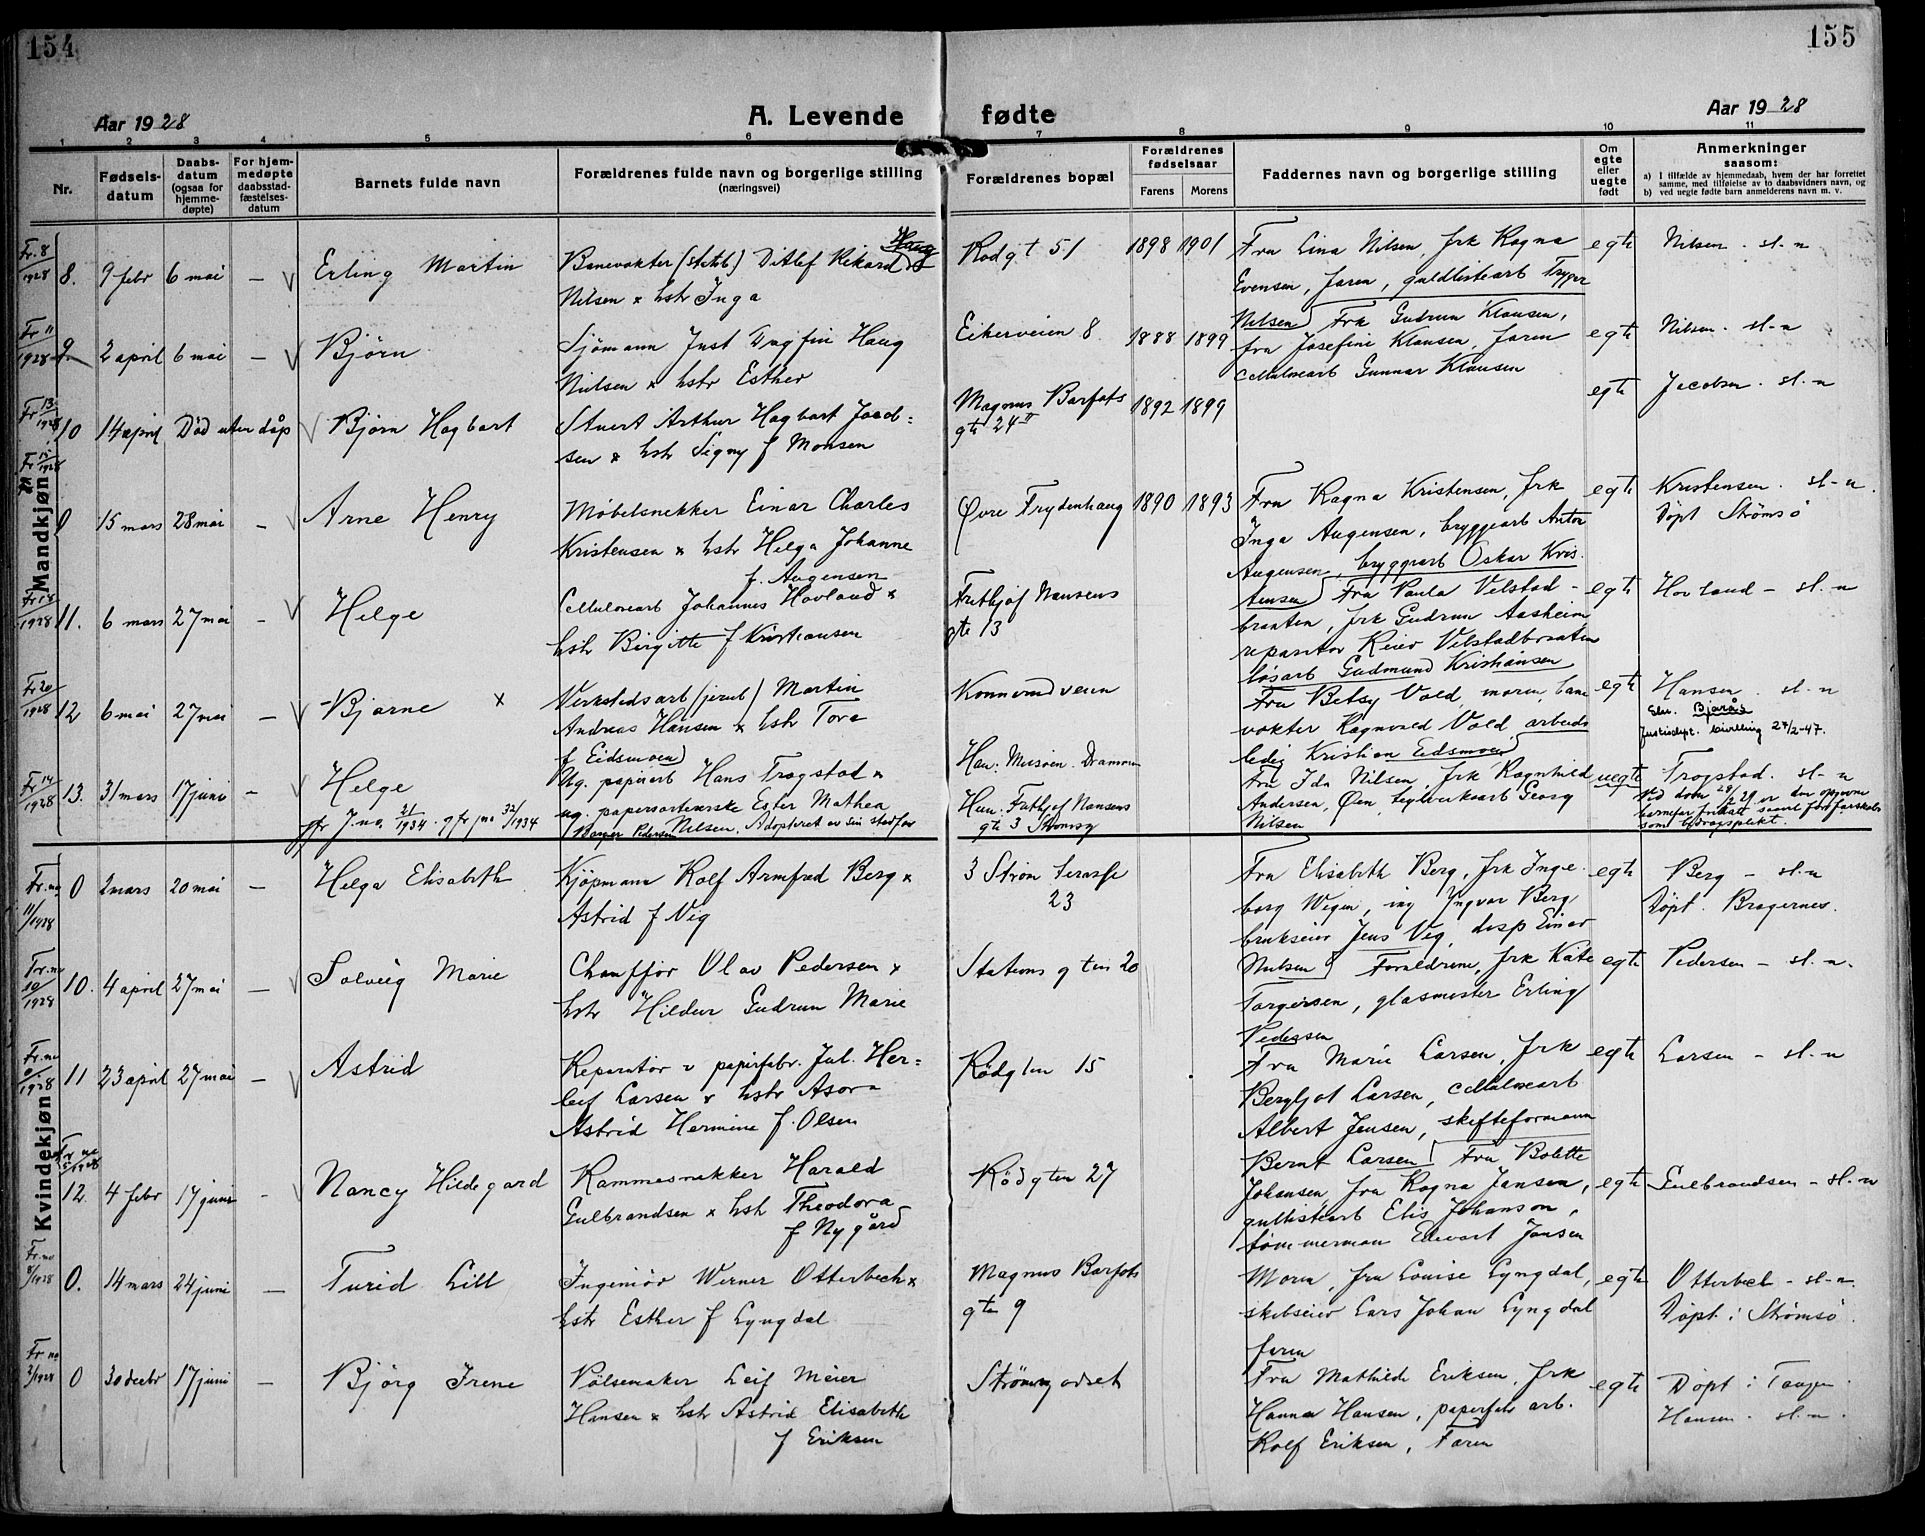 154
155
Aar 1928
A. Levende fødte
Aar 1928
1 2 3 4 5 6 7 8 9 10 11
Nr.
Fødsels-
datum
Daabs-
datum
(ogsaa for
hjemme-
døpte)
For hjem-
medøpte
daabsstad-
fæstelses-
datum
Barnets fulde navn
Forældrenes fulde navn og borgerlige stilling
(næringsvei)
Forældrenes bopæl
Forældrenes
fødselsaar
Farens Morens
Faddernes navn og borgerlige stilling
Om
egte
eller
uegte
født
Anmerkninger
saasom:
a) I tilfælde av hjemmedaab, hvem der har forrettet
samme, med tilføielse av to daabsvidners navn, og
b) ved uegte fødte barn anmelderens navn m. v.
Mandkjøn
Fr. 8
1928
8. 9 febr 6 mai — Erling Martin
Banevokter (statsb) Ditlef Rikard Haug
Nilsen x hstr Inga
Rødgt 51 1898 1901
Fru Lina Nilsen, frk Ragna
Evensen, faren, guldlistearb Trygve
Nilsen
egte
Nilsen. sl. n
Fr 11
1928
9. 2 april 6 mai — Bjørn
Sjømann Just Dagfin Haug
Nielsen x hstr Esther
Eikerveien 8 1888 1899
Frk Gudrun Klausen,
fru Josefine Klausen, faren
cellulosearb Gunnar Klausen
egte
Nilsen. sl-n
Fr 13
1928
10 14 april Død uten dåp Bjørn Hagbart
Stuert Arthur Hagbart Jacob-
sen x hstr Signy f Monsen
Magnus Barfots
gt 24 II
1892 1899
egte
Jacobsen. sl. n
Fr 15
1928
0 15 mars 28 mai — Arne Henry
Møbelsnekker Einar Charles
Kristensen x hstr Helga Johanne
f. Augensen
Øvre Frydenhaug 1890 1893
Fru Ragna Kristensen, frk
Inga Augensen, bryggearb Anton
Augensen, bryggearb Oskar Kris-
tensen
egte
Kristensen. sl-n.
Døpt Strømsø
Fr 18
1928
11. 6 mars 27 mai - Helge
Cellulosearb Johannes Hovland x
hstr Birgitte f Kristiansen
Frithjof Nansens
gte 13
Fru Paula Velstad-
braaten, frk Gudrun Aasheim
reparatør Reier Velstadbraaten
løsarb Gudmund Kristiansen
egte
Hovland - sl. n
Fr 20
1928
12 6 mai 27 mai — Bjarne x
Verkstedsarb (jernb) Martin
Andreas Hansen x hstr Tora
f Eidsmoen
Konnerudveien
Fru Betsy Vold, moren, bane
vokter Ragnvald Vold arbeids
ledig Kristian Eidsmoen
egte
Hansen. sl. n
Bjarås
Justisdept. bevilling 27/2-47.
Fr 14
1928
13. 31 mars 17 juni — Helge
jfr J.no. 31/1934 . g fr jno 32/1934
Ug. papirarb Hans Trogstad x
ug. papersortererske Ester Mathea
Nilsen. Adopteret av sin stedfar
Pedersen
Han: Drammen
Hun: Frithjof Nansens
gte 3 Strømsg
Fru Ida Nilsen, frk Ragnhild
Andersen, Øen, teglverksarb Georg
Nilsen
uegte
Trogstad. sl-n
Ved dom er den opgivne
barnefar frikjent samt for farskab
som bidragsplikt.
Kvindekjøn
Fr. no
11/1928
0 2 mars 20 mai — Helga Elisabeth
Kjøpmann Rolf Armfred Berg x
Astrid f Vig
3 Strøm terasse
23
Fru Elisabeth Berg, frk Inge-
borg Wegen, ing Yngvar Berg
brukseier Jens Vig, disp Einar
Nilsen
egte
Berg - sl. n
Døpt. Bragernes.
Fr. no
10
1928
10. 4 april 27 mai — Solveig Marie
Chauffør Olav Pedersen x
hstr Hildur Gudrun Marie
Stationsgten 20
Foreldrene, frk Käte
Torgersen, glasmester Erling
Pedersen
egte
Pedersen - sl. n.
Fr. no
1928
11 23 april 27 mai — Astrid
Reparatør v papirfabr. Jul. Her-
leif Larsen x hstr Asora
Astrid Hermine f. Olsen
Rødgten 15
Fru Marie Larsen, frk
Bergljot Larsen, cellulosearb
Albert Jensen, skifteformann
Bernt Larsen
egte
Larsen - sl. n
Fr no
5/1928
12. 4 febr 17 juni - Nancy Hildegard
Rammesnekker Harald
Gulbrandsen x hstr Theodora
f Nygård
Rødgten 27
Fru Bolette
Johansen, fru Ragna Jansen,
gullistearb Elis Johanson,
tømmerman Edvart Jansen
egte
Gulbrandsen - sl. n
Fr. no
8/1928
0. 14 mars 24 juni — Turid Lill
Ingeniør Werner Otterbech x
hstr Esther f Lyngdal
Magnus Barfots
gte 9
Moren, fru Louise Lyngdal,
skibseier Lars Johan Lyngdal
faren
egte
Otterbech - sl-n.
Døpt i Strømsø.
Fr no
2/1928
0 30 decbr 17 juni — Bjørg Irene
Pølsemaker Leif Meier
Hansen x hstr Astrid Elisabeth
f Eriksen
Strømsgodset
Fru Mathilde Eriksen, frk
Hanna Hansen, paperfabr arb.
Rolf Eriksen, Faren
egte
Døpt i Tangen.
Hansen. sl. n.